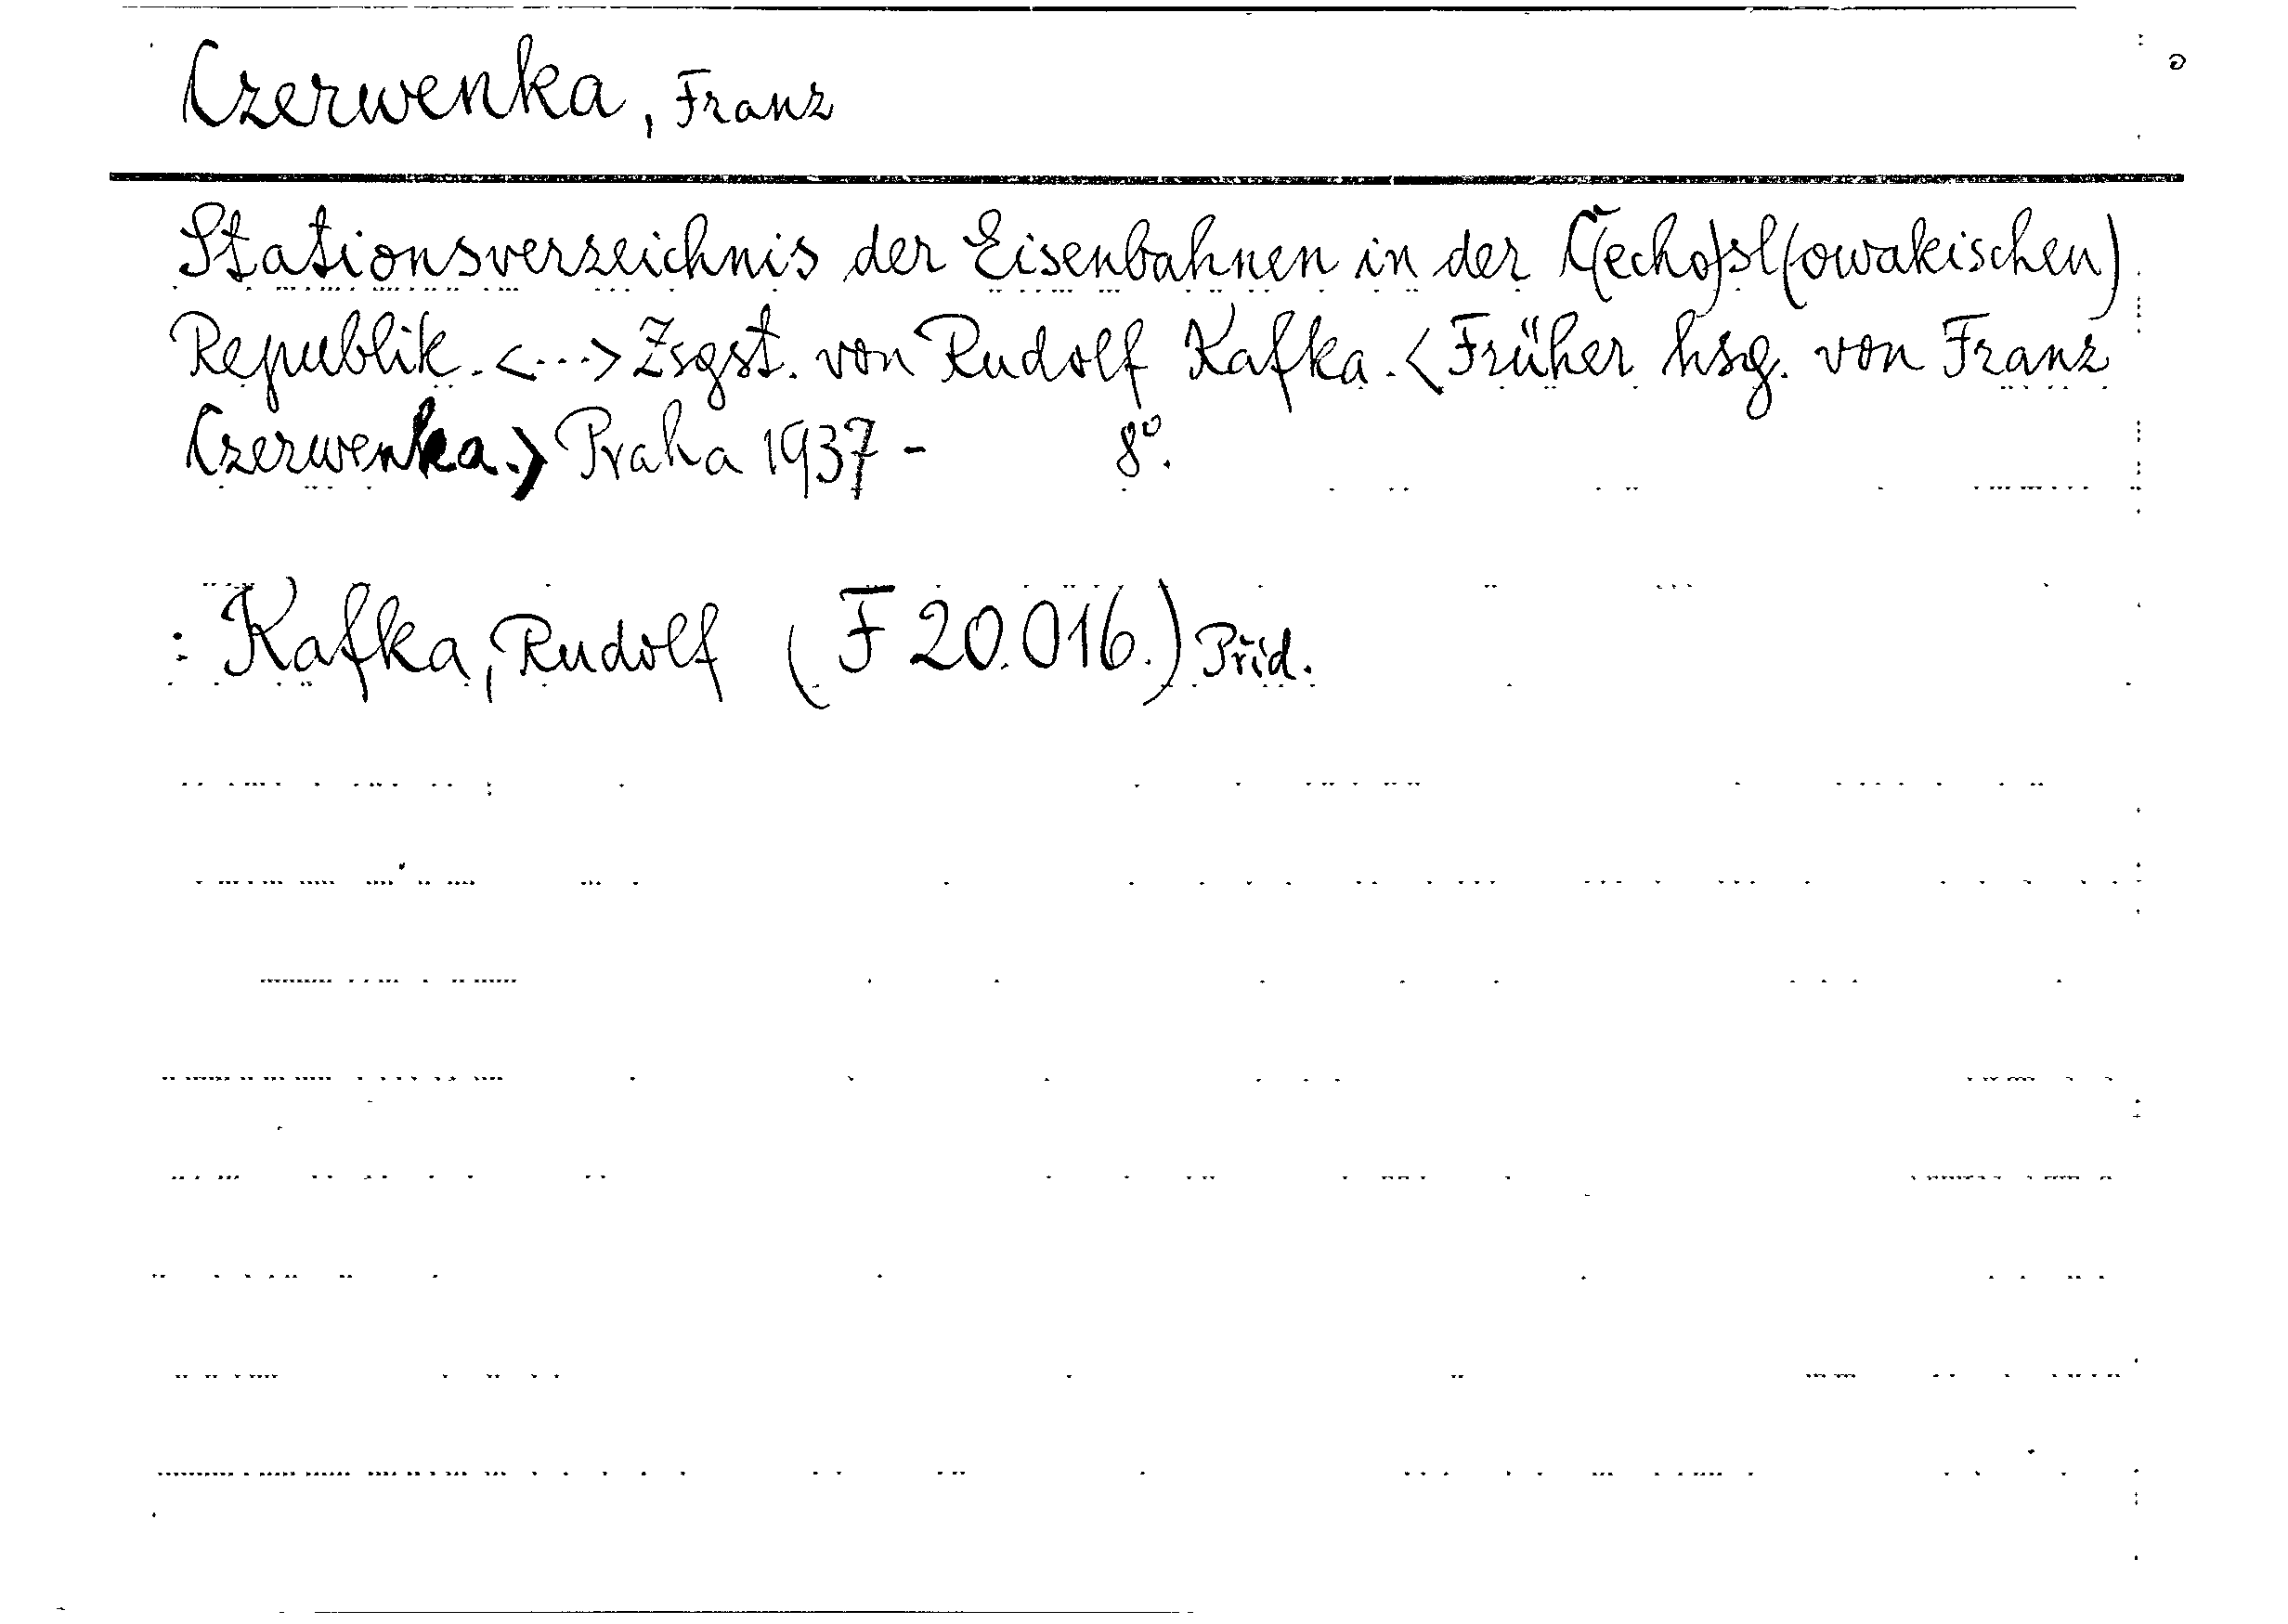 Czerwenka, Franz
Stationsverzeichnis der Eisenbahnen in der Č(echo)sl(owakischen)
Republik. <...> Zsgst. von Rudolf Kafka. <Früher hsg. von Franz
Czerwenka.> Praha 1937 - 8°.
: Kafka, Rudolf (F 20.016.) Příd.